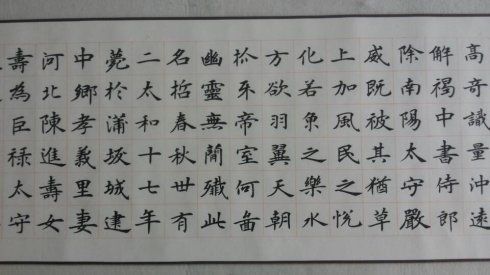 高奇識量沖遠
解褐中書侍郎
除南陽太守嚴
威既被其猶草
上加風民之悅
化若魚之樂水
方欲羽翼天朝
爪牙帝室何啚
幽靈無簡殲此
名哲春秋世有
二太和十七年
薨於蒲坂城建
中鄉孝義里妻
河北陳進壽女
壽為臣祿太守